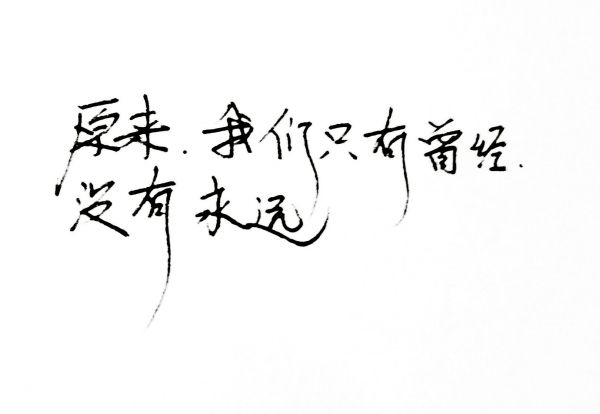 原来.我们只有曾经.
没有永远